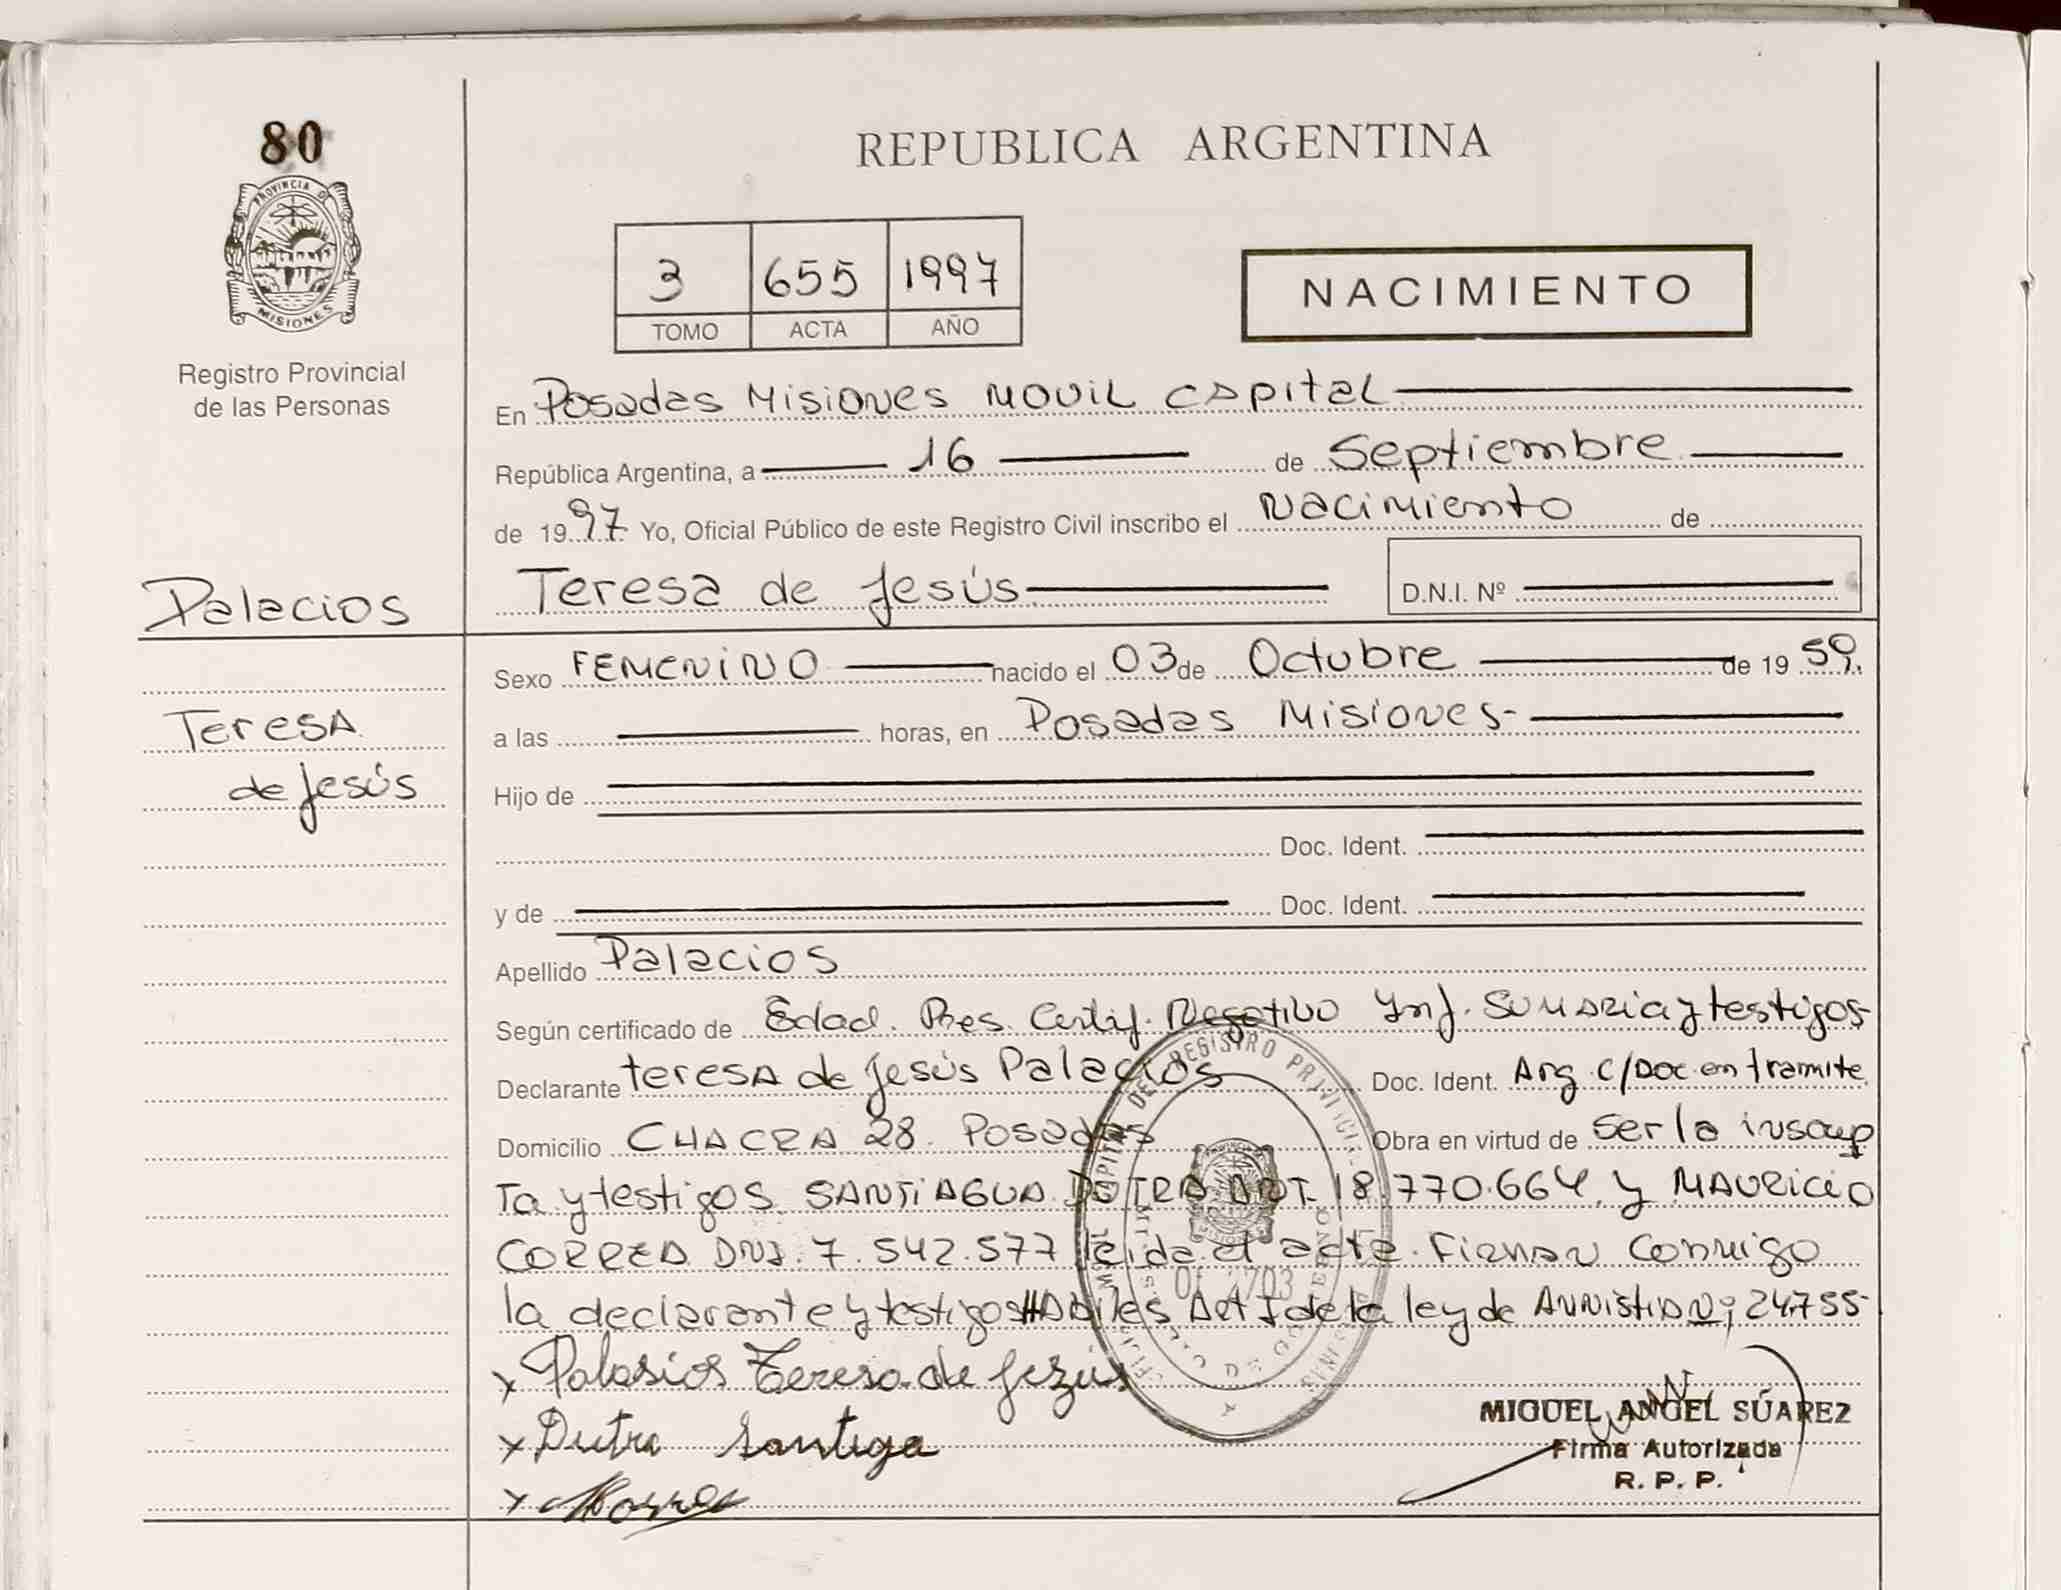 80
PROVINCIA DE
MISIONES
Registro Provincial
de las Personas
Palacios
Teresa
de Jesús
REPUBLICA ARGENTINA
3 655 1997
TOMO ACTA AÑO
NACIMIENTO
En Posadas Misiones MOVIL CAPITAL
República Argentina, a 16 de Septiembre
de 1997 Yo, Oficial Público de este Registro Civil inscribo el Nacimiento de
Teresa de Jesús D.N.I. Nº
Sexo FEMENINO nacido el 03 de Octubre de 1959.
a las horas, en Posadas Misiones-
Hijo de
Doc. Ident.
y de Doc. Ident.
Apellido Palacios
Según certificado de Edad. Pres. Certif. Negativo Ynf. SUMARIA y testigos
Declarante teresa de Jesús Palacios Doc. Ident. Arg. C/Doc en tramite.
Domicilio CHACRA 28. Posadas Obra en virtud de ser la inscrip
Ta y testigos. SANTIAGUA DUTRA 18.770.664, y MAURICIO
CORREA DNI. 7.542.577 leida el acta. Firman Conmigo
la declarante y testigos HABiles Art 1 de la ley de AMNistiA Nº 24755-
x Palasios Tereza de Jezús
x Dutra Santiga
x
MIGUEL ANGEL SÚAREZ
Firma Autorizada
R. P. P.